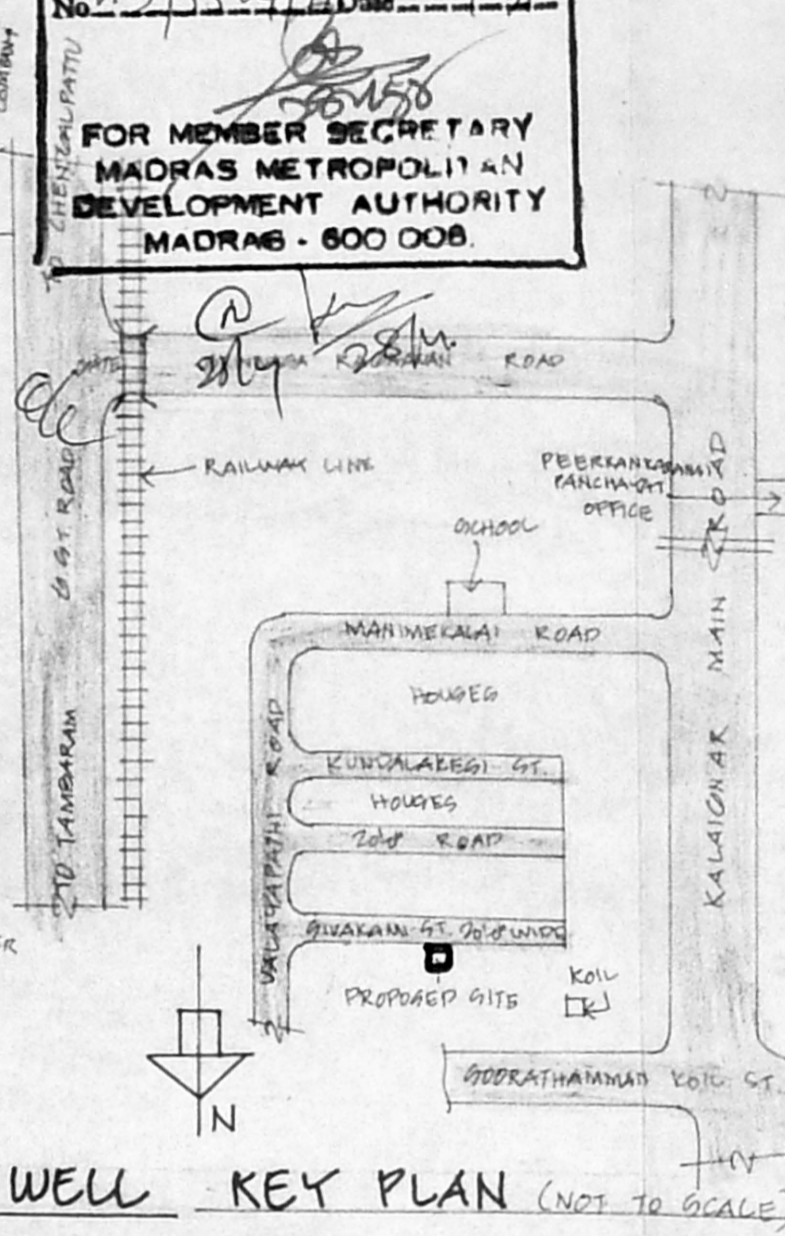 No.
Date
FOR MEMBER SECRETARY
MADRAS METROPOLITAN
DEVELOPMENT AUTHORITY
MADRAS - 600 008.
TO CHENGALPATTU
GATE
ROAD
RAILWAY LINE
PEERKANKARANAI
PANCHAYAT
OFFICE
SCHOOL
G.S.T. ROAD
MANIMEKALAI ROAD
HOUSES
KUNDALAKESI ST.
HOUSES
20'8 ROAD
SIVAKAMI ST. 20'8 WIDE
VALAYAPATHI ROAD
KALAIGNAR MAIN ROAD
TO TAMBARAM
PROPOSED SITE
KOIL
GOORATHAMMAN KOIL ST.
N
WELL KEY PLAN (NOT TO SCALE)